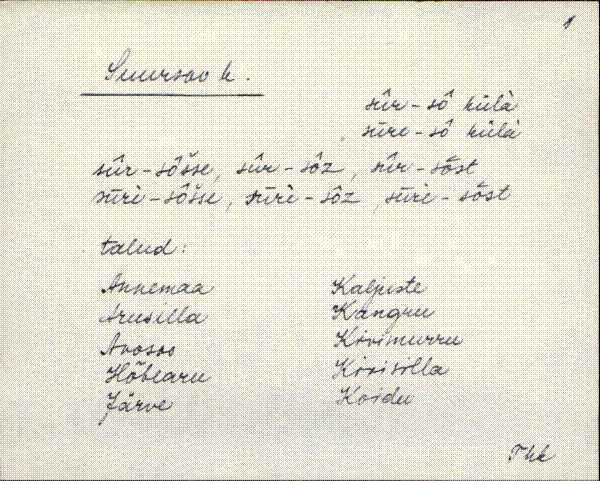 1
Suursoo k.
sûr-sô külà
sūre-sô külà
sûr-sôšse, sûr-sôz, sûr-sōst
sūrè-sôšse, sūrè-sôz, sūre-sōst
talud:
Annemaa
Arusilla
Avosoo
Hõbearu
Järve
Kaljuste
Kangru
Kivimurru
Kivisilla
Koidu
Thk